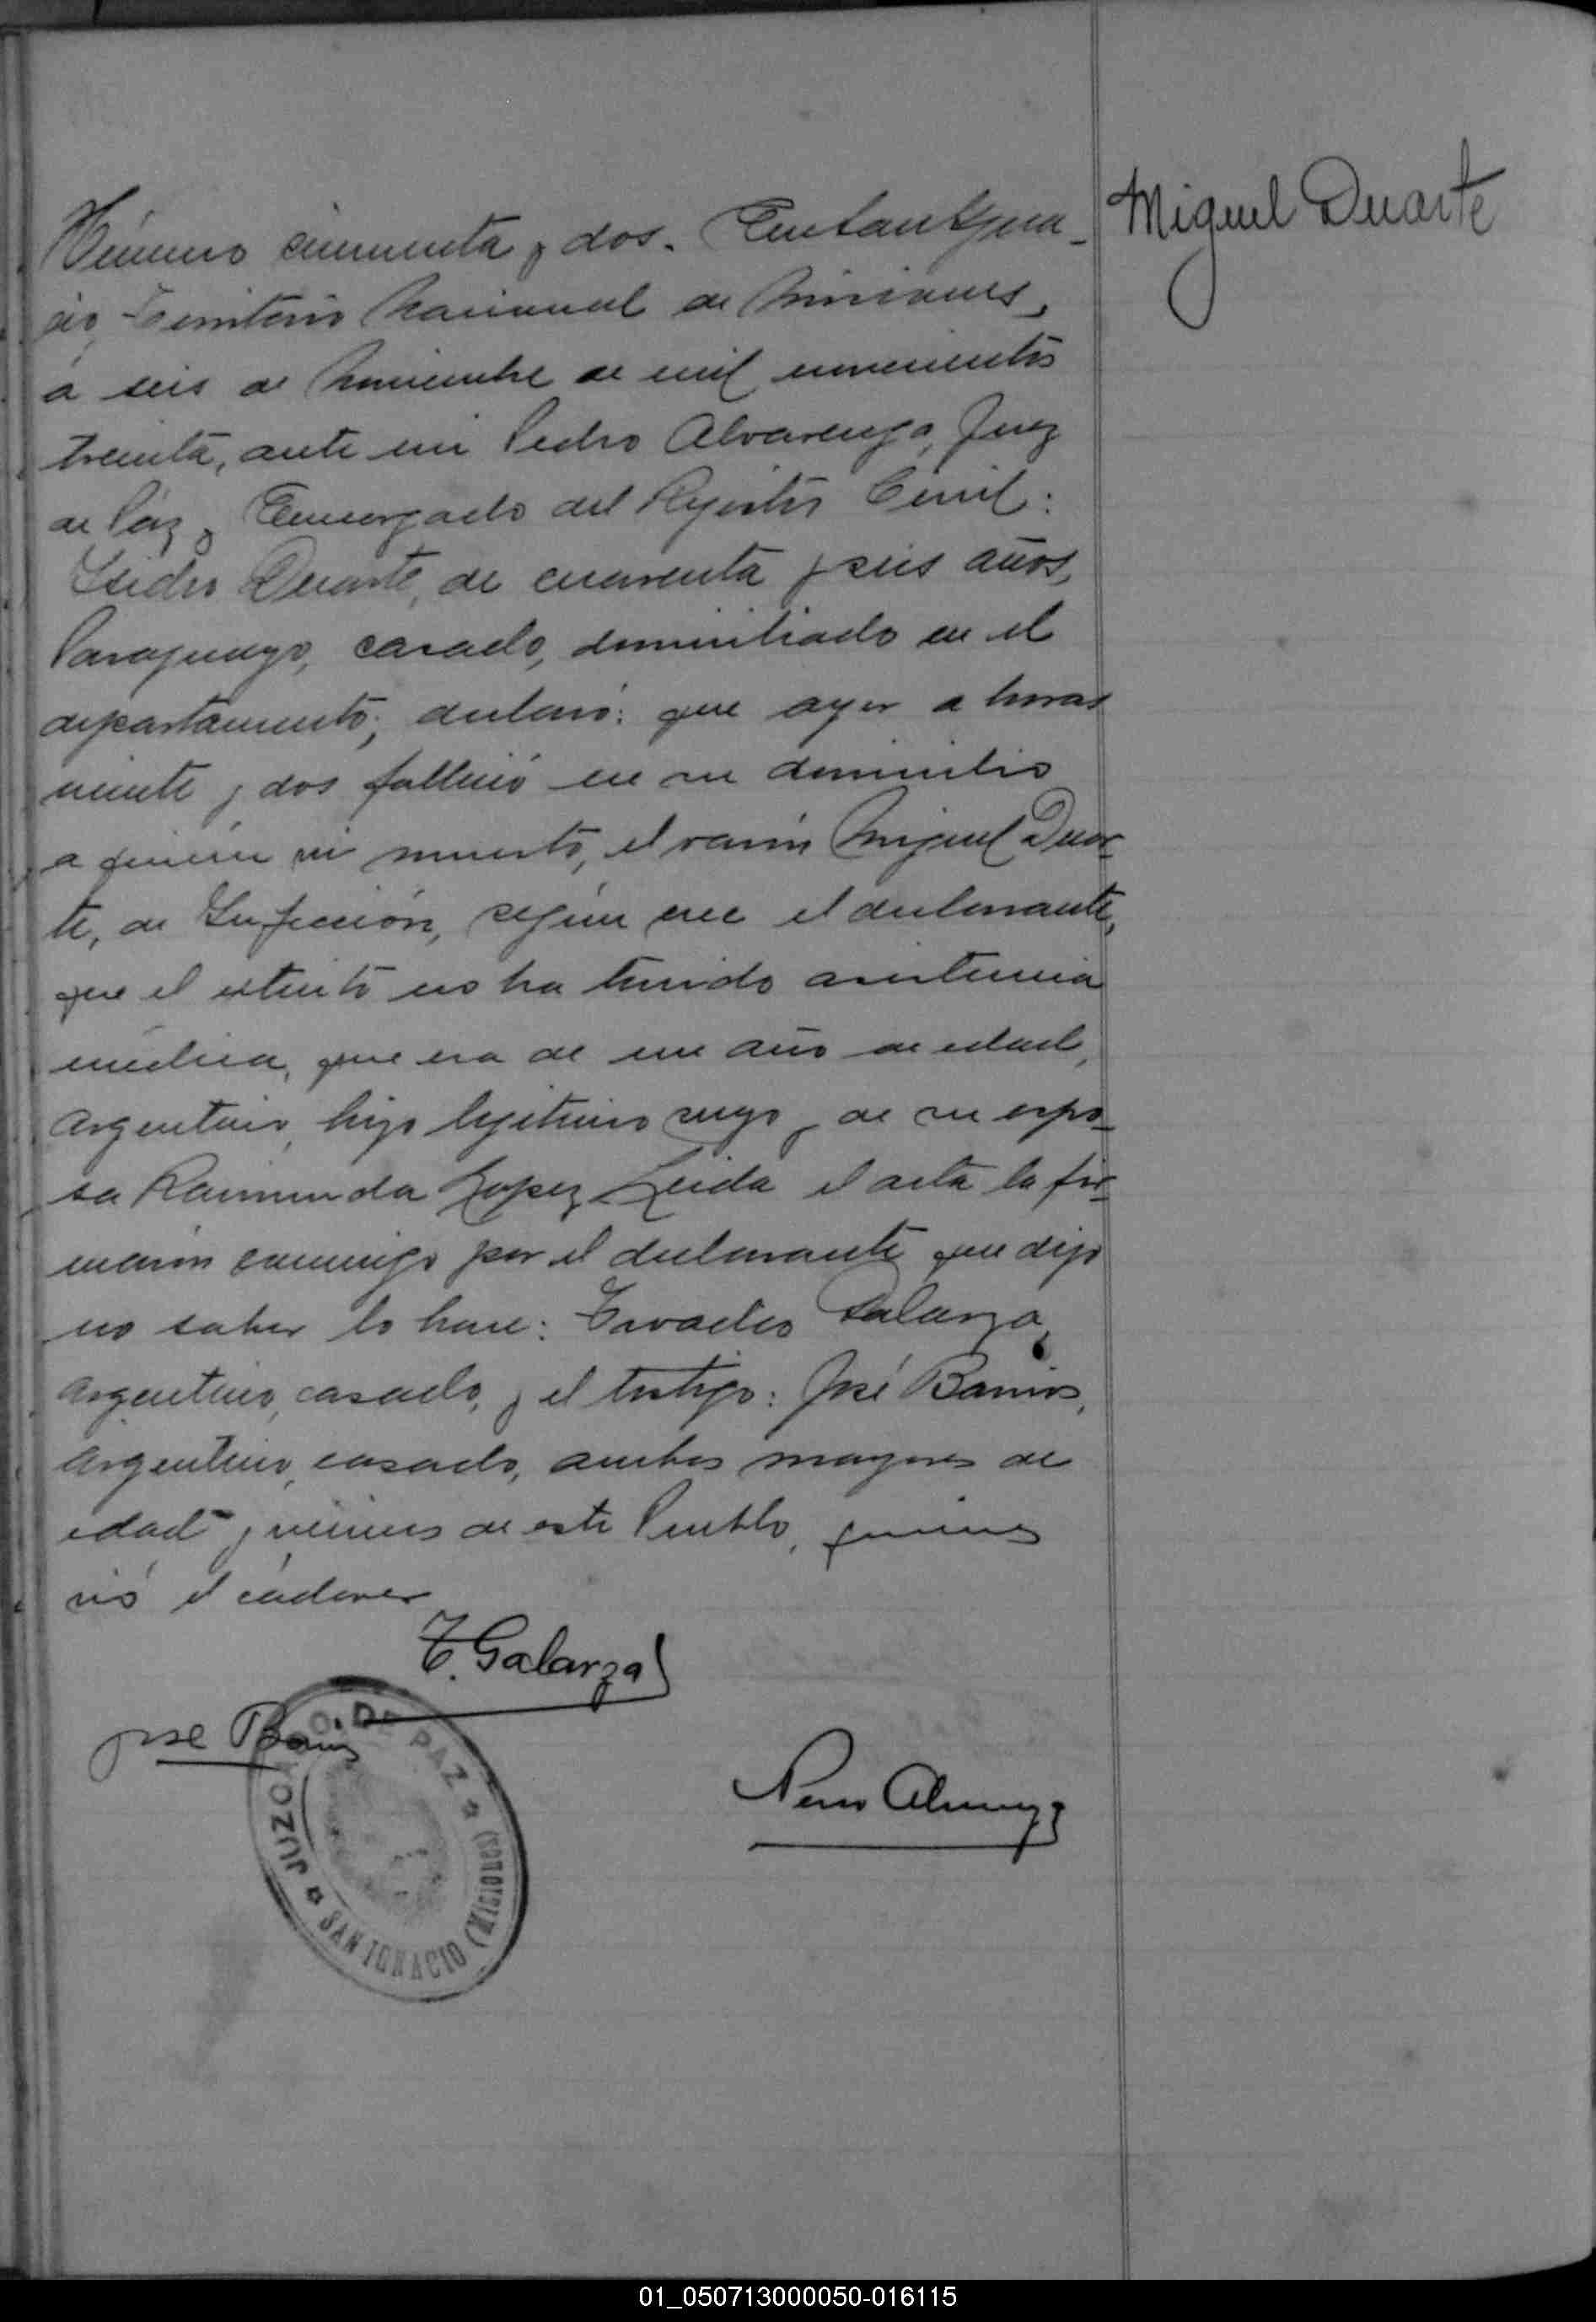 Miguel Duarte
Número cincuenta y dos. En San Igna-
cio, Territorio Nacional de Misiones,
a seis de Noviembre de mil novecientos
treinta, ante mi Pedro Alvarenga, Juez
de Páz y Encargado del Rejistro Civil:
Isidro Duarte, de cuarenta y seis años,
Paraguayo, casado, domiciliado en el
departamento; declaró: que ayer a horas
veinte y dos falleció en su domicilio
a quien vi muerto, el varón Miguel Duar-
te, de Infección, según cree el declarante,
que el extinto no ha tenido asistencia
médica, que era de un año de edad,
Argentino, hijo lejitimo suyo y de su espo-
sa Raimunda Lopez Leida el acta la fir-
maron conmigo por el declarante que dijo
no saber lo hace: Galarza,
Argentino, casado, y el testigo: José Barrios,
Argentino, casado, ambos mayores de
edad y vecinos de este Pueblo, quienes
vió el cadaver
T. Galarza
Jose Barrios
Pedro Alvarenga
JUZGADO DE PAZ
SAN IGNACIO (Misiones)
01_050713000050-016115